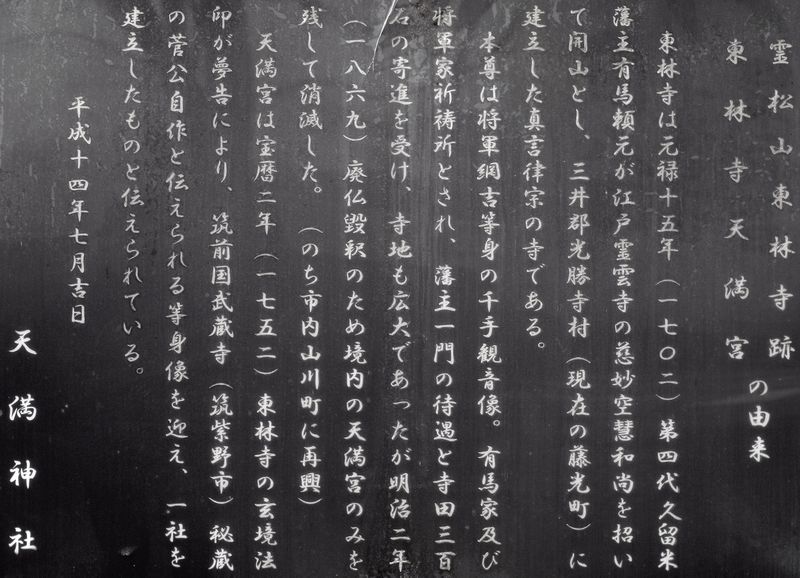 霊松山東林寺跡
東林寺天満宮
の由来
東林寺は元禄十五年（一七〇二）第四代久留米
藩主有馬頼元が江戸霊雲寺の慈妙空慧和尚を招い
て開山とし、三井郡光勝寺村（現在の藤光町）に
建立した真言律宗の寺である。
本尊は将軍綱吉等身の千手観音像。有馬家及び
将軍家祈祷所とされ、藩主一門の待遇と寺田三百
石の寄進を受け、寺地も広大であったが明治二年
（一八六九）廃仏毀釈のため境内の天満宮のみを
残して消滅した。（のち市内山川町に再興）
天満宮は宝暦二年（一七五二）東林寺の玄境法
印が夢告により、筑前国武蔵寺（筑紫野市）秘蔵
の菅公自作と伝えられる等身像を迎え、一社を
建立したものと伝えられている。
平成十四年七月吉日
天満神社